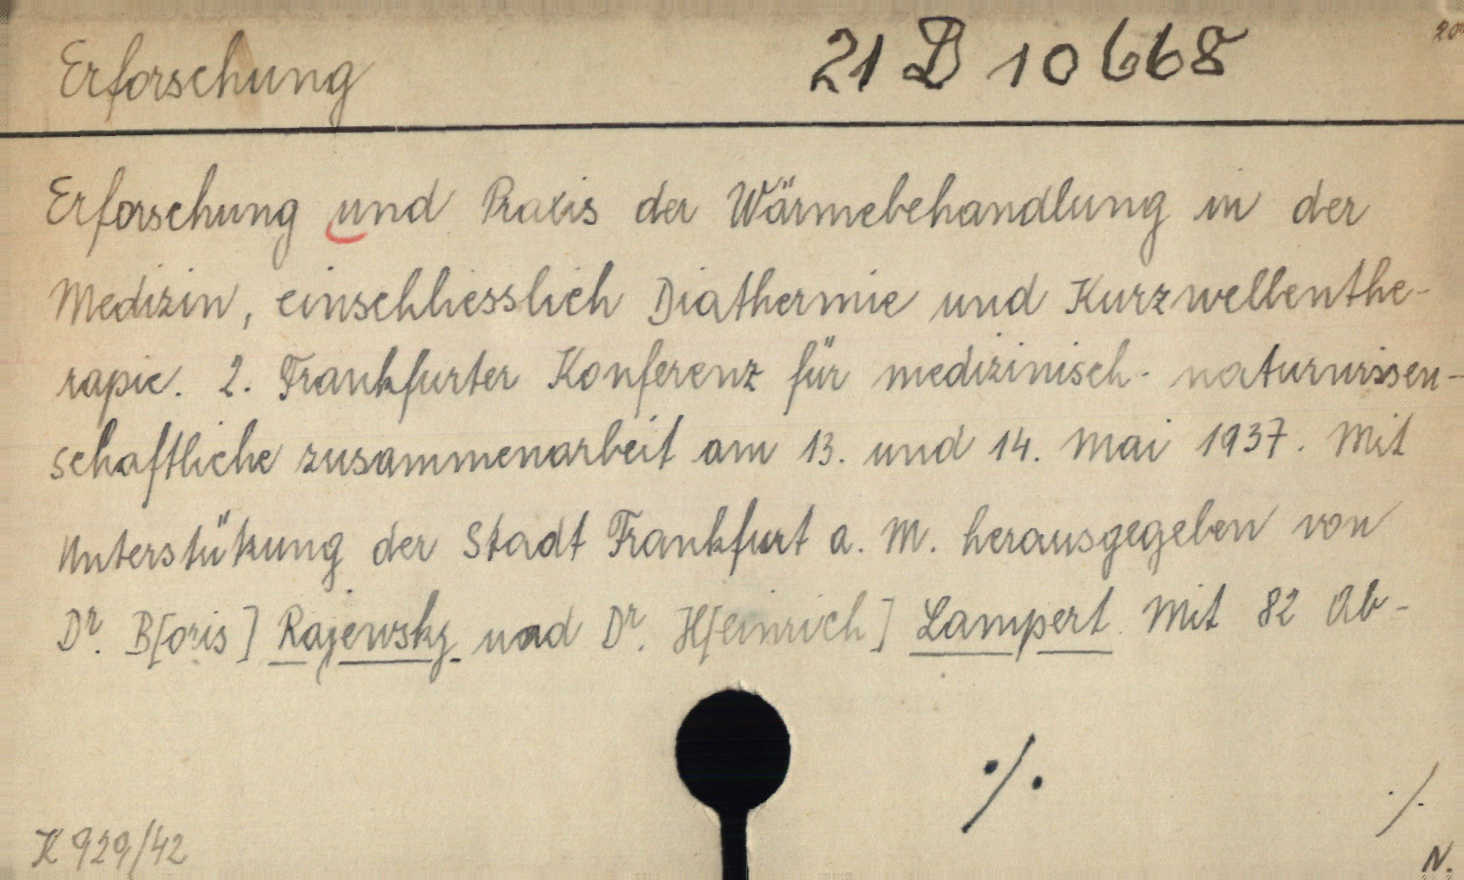 Erforschung 21 D 10668
Erforschung und Praxis der Wärmebehandlung in der
Medizin, einschliesslich Diathermie und Kurzwellenthe-
rapie. 2. Frankfurter Konferenz für medizinisch-naturwissen-
schaftliche zusammenarbeit am 13. und 14. Mai 1937. Mit
Unterstützung der Stadt Frankfurt a. M. herausgegeben von
Dr. B[oris] Rajewsky und Dr. H[einrich] Lampert. Mit 82 Ab-
./.
./.
K 929/42 N.